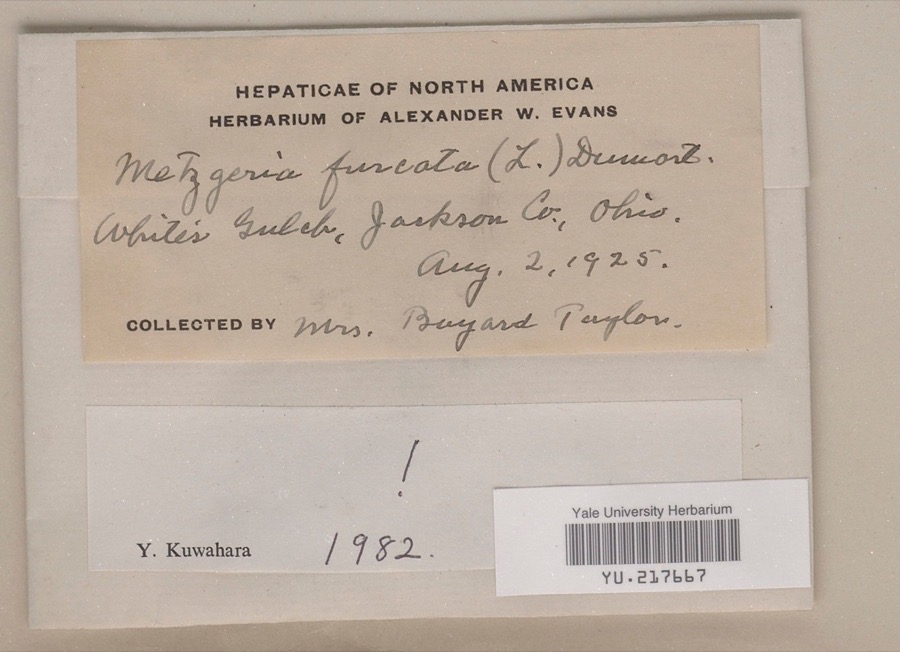 HEPATICAE OF NORTH AMERICA
HERBARIUM OF ALEXANDER W. EVANS
Metzgeria furcata (L.) Dumort.
White's Gulch, Jackson Co., Ohio.
Aug. 2, 1925.
COLLECTED BY Mrs. Bayard Taylor.
!
Y. Kuwahara 1982.
Yale University Herbarium
YU.217667